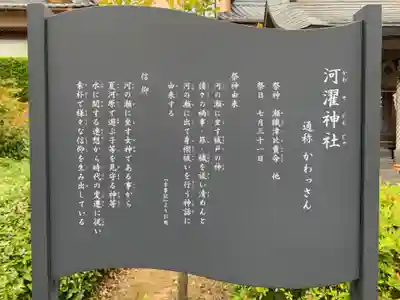 河濯神社
通称 かわっさん
祭神 瀬織津比賣命 他
祭日 七月三十一日
祭神由来
河の瀬に坐す祓戸の神
諸々の禍事・罪・穢を祓い清めんと
河の瀬に出て身禊祓いを行う神話に
由来する
『古事記』より引用
信仰
河の瀬に坐す女神である事から
夏河原で遊ぶ子等を見守る神等
水に関する連想から時代の変遷に従い
素朴で様々な信仰を生み出している